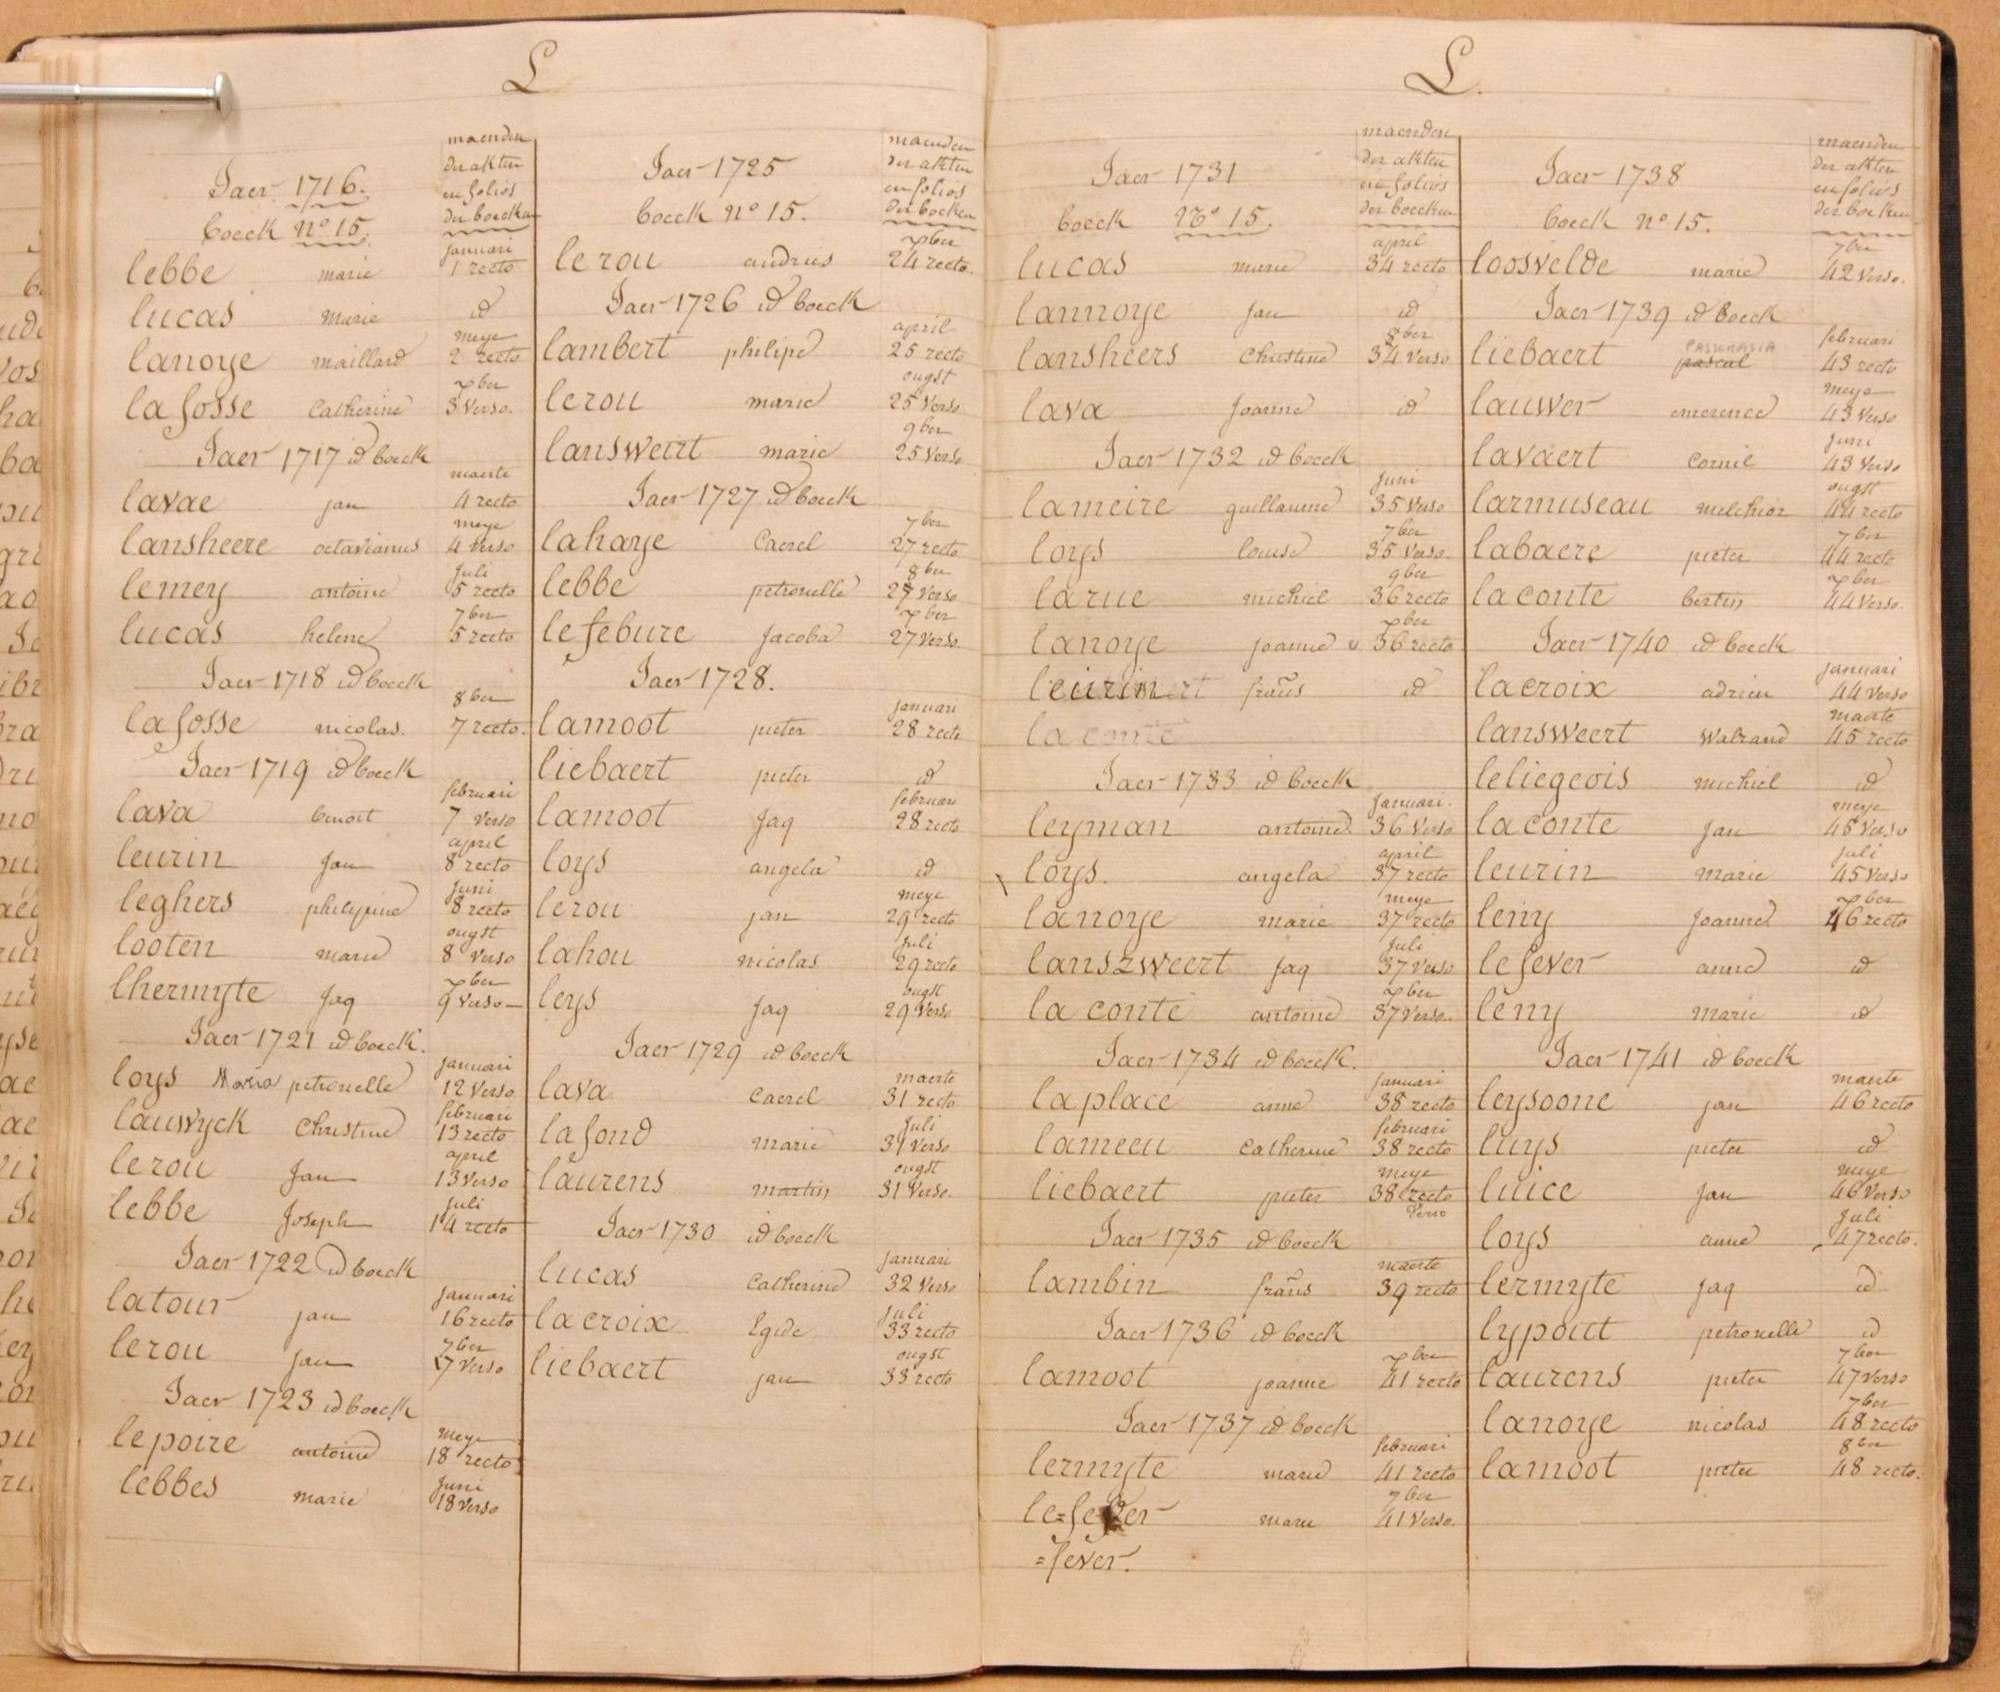 L
Jaer 1716.
boeck nº 15.
maenden
der akten
en folios
der boecken
lebbe marie januari 1 recto
lucas marie id
lanoye maillard meye 2 recto
lafosse Catherine xber 3 verso.
Jaer 1717 id boeck
lavae jan maerte 4 recto
lansheere octavianus meye 4 verso
lemey antoine juli 5 recto
lucas helene 7ber 5 recto
Jaer 1718 id boeck
lafosse nicolas. 8ber 7 recto.
Jaer 1719 id boeck
lava benoit februari 7 verso
leurin jan april 8 recto
leghers philypine juni 8 recto
looten marie ougst 8 verso
lhermyte jaq xber 9 verso
Jaer 1721 id boeck.
loys Maria petronelle januari 12 verso
lauwyck Christine februari 13 recto
lerou jan april 13 verso
lebbe Joseph juli 14 recto
Jaer 1722 id boeck
latour jan januari 16 recto
lerou jan 7ber 17 verso
Jaer 1723 id boeck
lepoire antoine meye 18 recto
lebbes marie juni 18 verso
Jaer 1725
boeck nº 15.
maenden
der akten
en folios
der boecken
lerou andries xber 24 recto.
Jaer 1726 id boeck
lambert philipe april 25 recto
lerou marie ougst 25 verso
lansweert marie 9ber 25 verso
Jaer 1727 id boeck
lahaye Caerel 7ber 27 recto
lebbe petronelle 8ber 27 verso
lefebure Jacoba xber 27 verso
Jaer 1728.
lamoot pieter januari 28 recto
liebaert pieter id
lamoot jaq februari 28 recto
loys angela id
lerou jan meye 29 recto
lahou nicolas juli 29 recto
leys jaq ougst 29 verso
Jaer 1729 id boeck
lava Caerel maerte 31 recto
lafond marie juli 31 verso
laurens martin ougst 31 verso.
Jaer 1730 id boeck
lucas Catherine januari 32 verso
lacroix Egide juli 33 recto
liebaert jan ougst 33 recto
L.
Jaer 1731
boeck nº 15.
maenden
der akten
en folios
der boecken
lucas marie april 34 recto
lannoye jan id
lansheers Christine 8ber 34 verso
lava Joanne id
Jaer 1732 id boeck
lameire guillaume juni 35 verso
loys louise 7ber 35 verso.
larue michiel 9ber 36 recto
lanoye joanne xber 36 recto
leurin frans id
la conte
Jaer 1733 id boeck
leyman antoine januari. 36 verso
loys. angela april 37 recto
lanoye marie meye 37 recto
lanszweert jaq juli 37 verso
la conte antoine xber 37 verso.
Jaer 1734 id boeck.
laplace anne januari 38 recto
lameeu Catherine februari 38 recto
liebaert pieter meye 38 recto
verso
Jaer 1735 id boeck
lambin frans maerte 39 recto
Jaer 1736 id boeck
lamoot joanne xber 41 recto
Jaer 1737 id boeck
lermyte marie februari 41 recto
le=fever marie 7ber 41 verso.
=fever.
Jaer 1738
boeck nº 15.
maenden
der akten
en folios
der boeken
loosvelde marie 7ber 42 verso.
Jaer 1739 id boeck
liebaert pascal PASCHASIA februari 43 recto
lauwer emerence meye 43 verso
lavaert Cornil juni 43 verso
larmuseau melchior ougst 44 recto
labaere pieter 7ber 44 recto
laconte bertin xber 44 verso.
Jaer 1740 id boeck
lacroix adrien januari 44 verso
lansweert Walrand maerte 45 recto
leliegeois michiel id
laconte jan meye 45 verso
leurin marie juli 45 verso
leny Joanne xber 46 recto
lefever anne id
leny marie id
Jaer 1741 id boeck
leysoone jan maerte 46 recto
luys pieter id
luice jan meye 46 verso
loys anne juli 47 recto.
lermyte jaq id
petronelle id
laurens pieter 7ber 47 verso
lanoye nicolas 7ber 48 recto
lamoot pieter 8ber 48 recto.